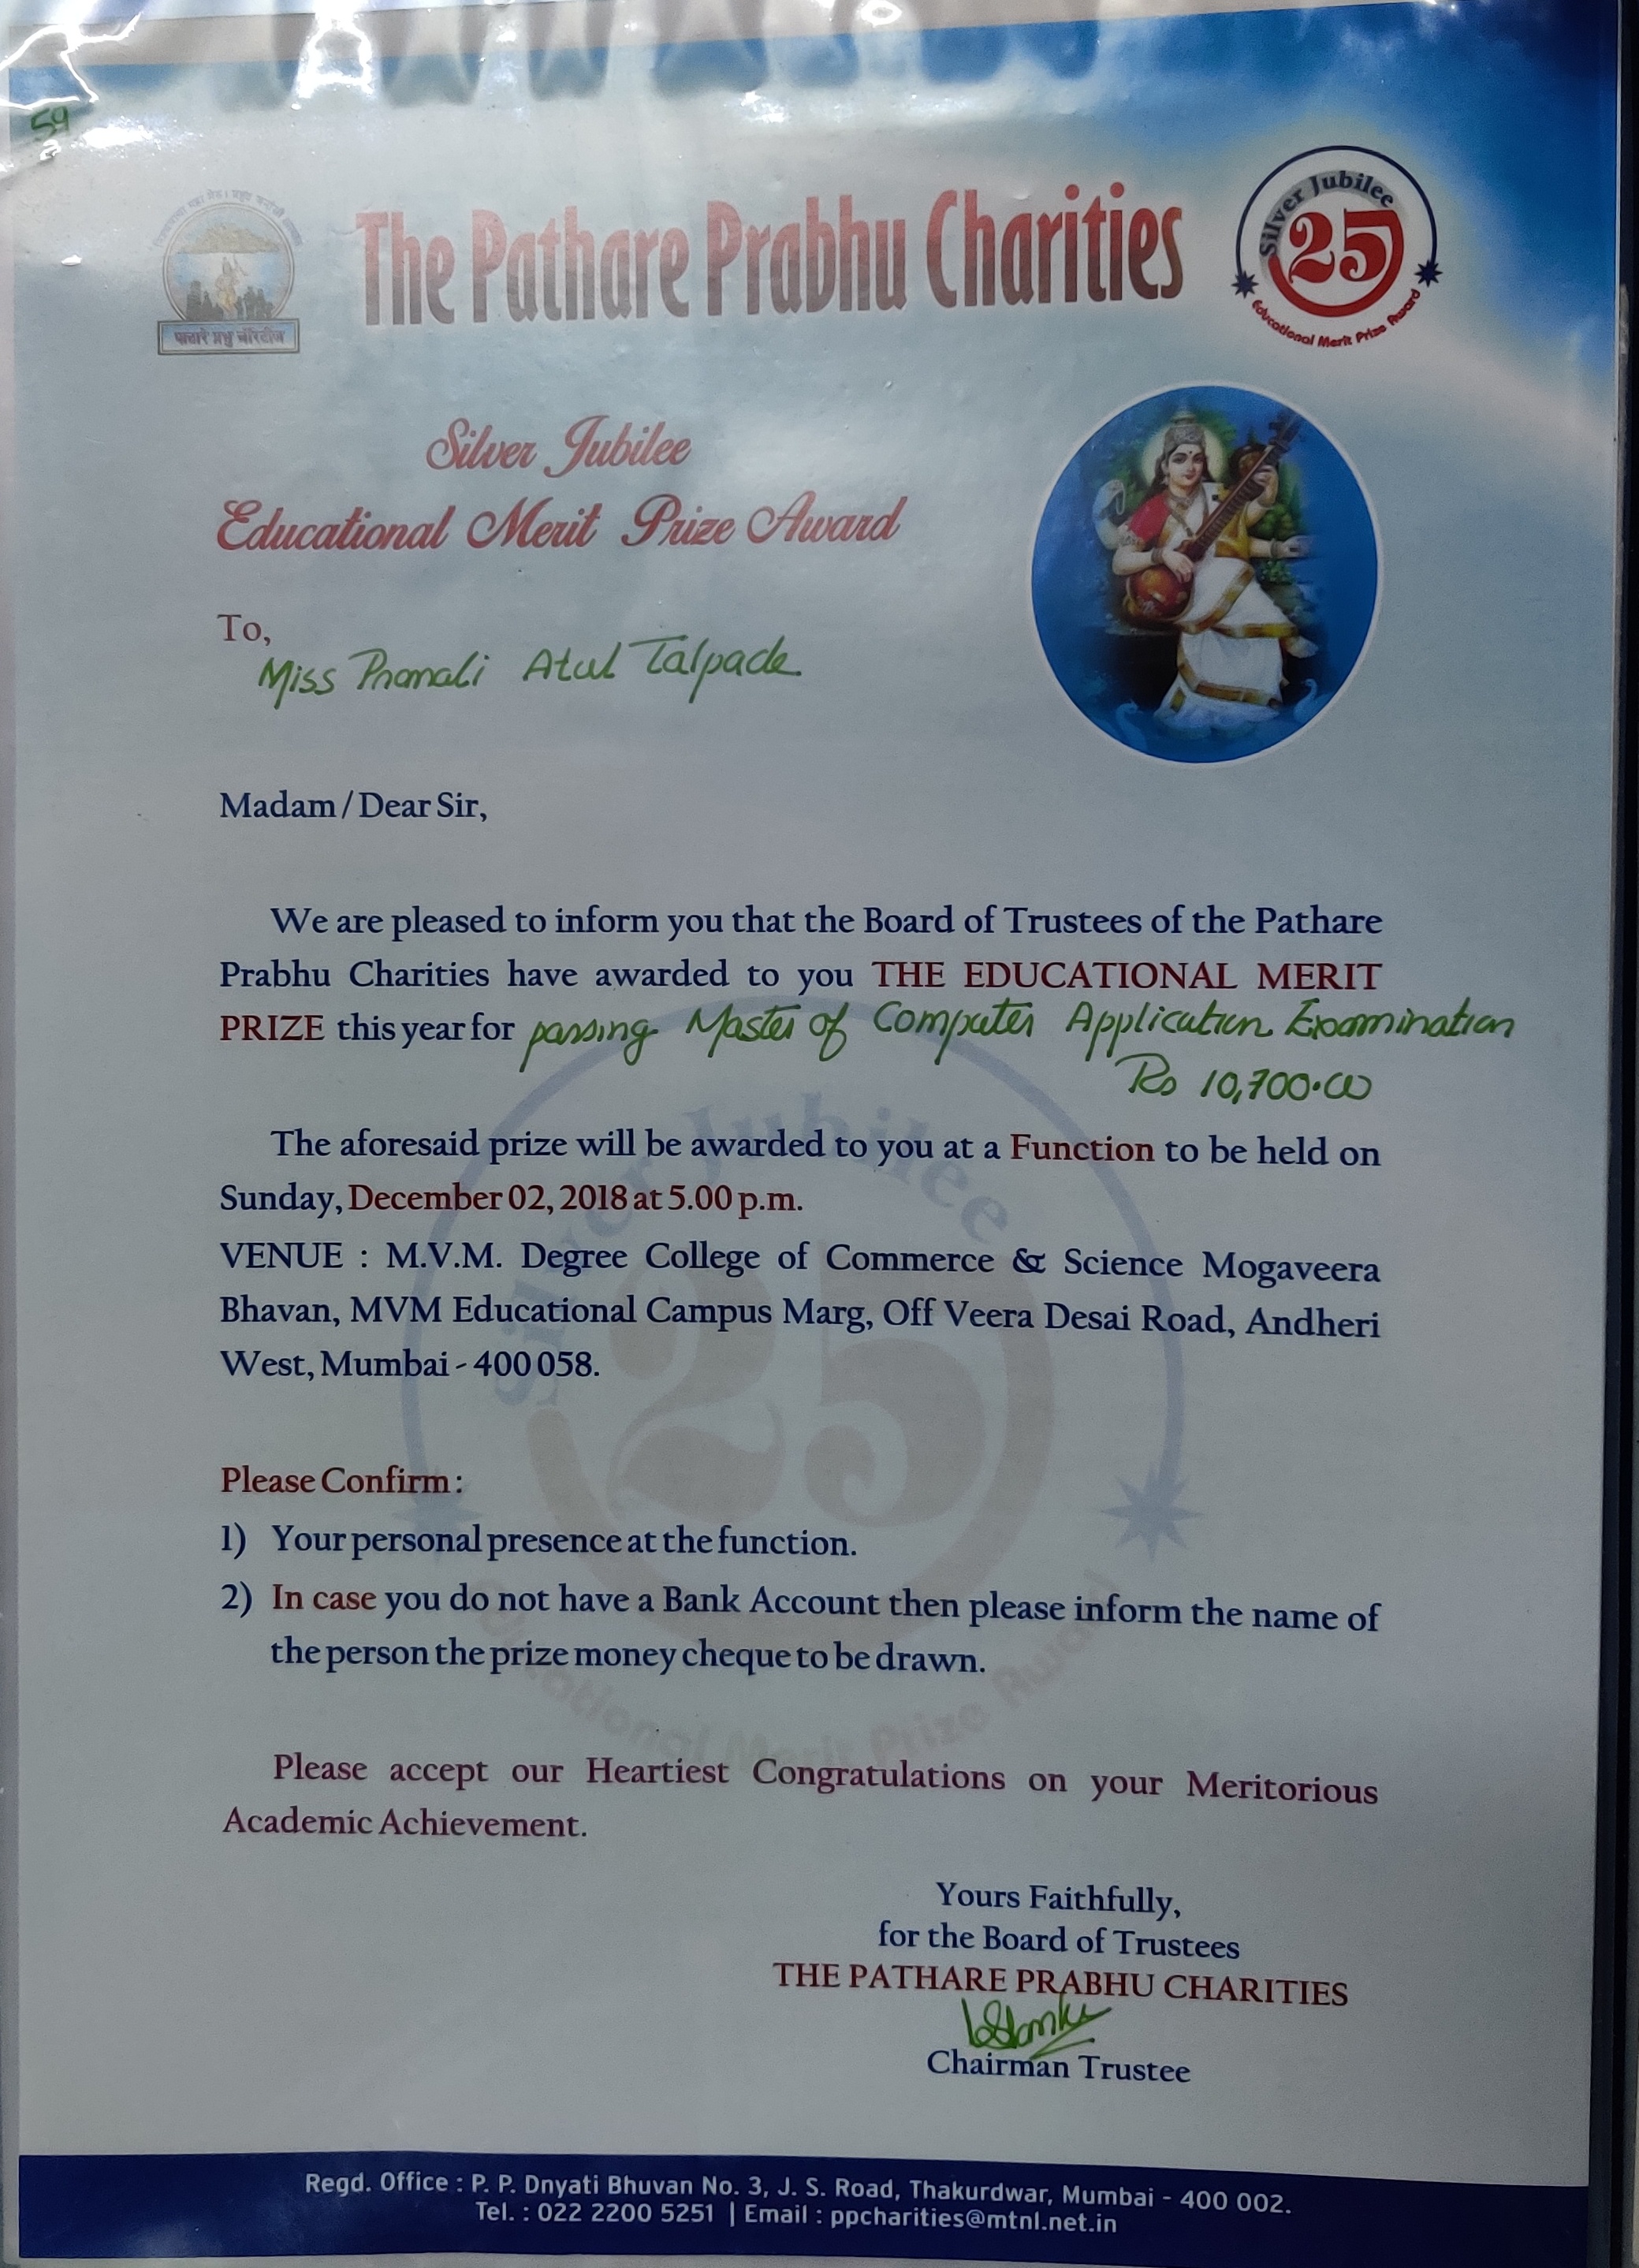 59
The Pathare Prabhu Charities
Silver Jubilee
25
Educational Merit Prize Award
पाठारे प्रभु चॅरिटीज
Silver Jubilee
Educational Merit Prize Award
To,
Miss Pranali Atul Talpade
Madam / Dear Sir,
We are pleased to inform you that the Board of Trustees of the Pathare
Prabhu Charities have awarded to you THE EDUCATIONAL MERIT
PRIZE this year for passing Master of Computer Application Examination
Rs 10,700.00
The aforesaid prize will be awarded to you at a Function to be held on
Sunday, December 02, 2018 at 5.00 p.m.
VENUE : M.V.M. Degree College of Commerce & Science Mogaveera
Bhavan, MVM Educational Campus Marg, Off Veera Desai Road, Andheri
West, Mumbai - 400 058.
Please Confirm :
1) Your personal presence at the function.
2) In case you do not have a Bank Account then please inform the name of
the person the prize money cheque to be drawn.
Please accept our Heartiest Congratulations on your Meritorious
Academic Achievement.
Yours Faithfully,
for the Board of Trustees
THE PATHARE PRABHU CHARITIES
Chairman Trustee
Regd. Office : P. P. Dnyati Bhuvan No. 3, J. S. Road, Thakurdwar, Mumbai - 400 002.
Tel. : 022 2200 5251 | Email : ppcharities@mtnl.net.in